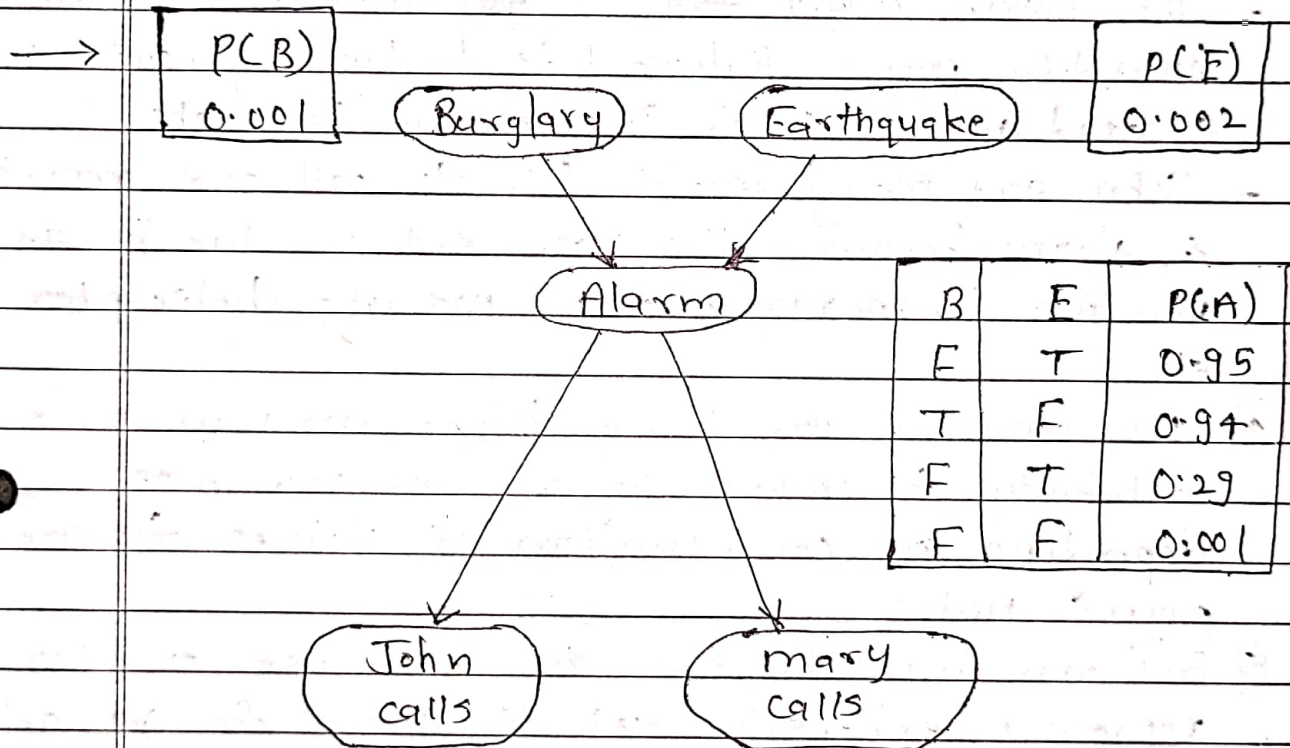 P(B)
0.001
Burglary
Earthquake
P(E)
0.002
Alarm
B E P(A)
E T 0.95
T F 0.94
F T 0.29
F F 0.001
John
calls
mary
calls